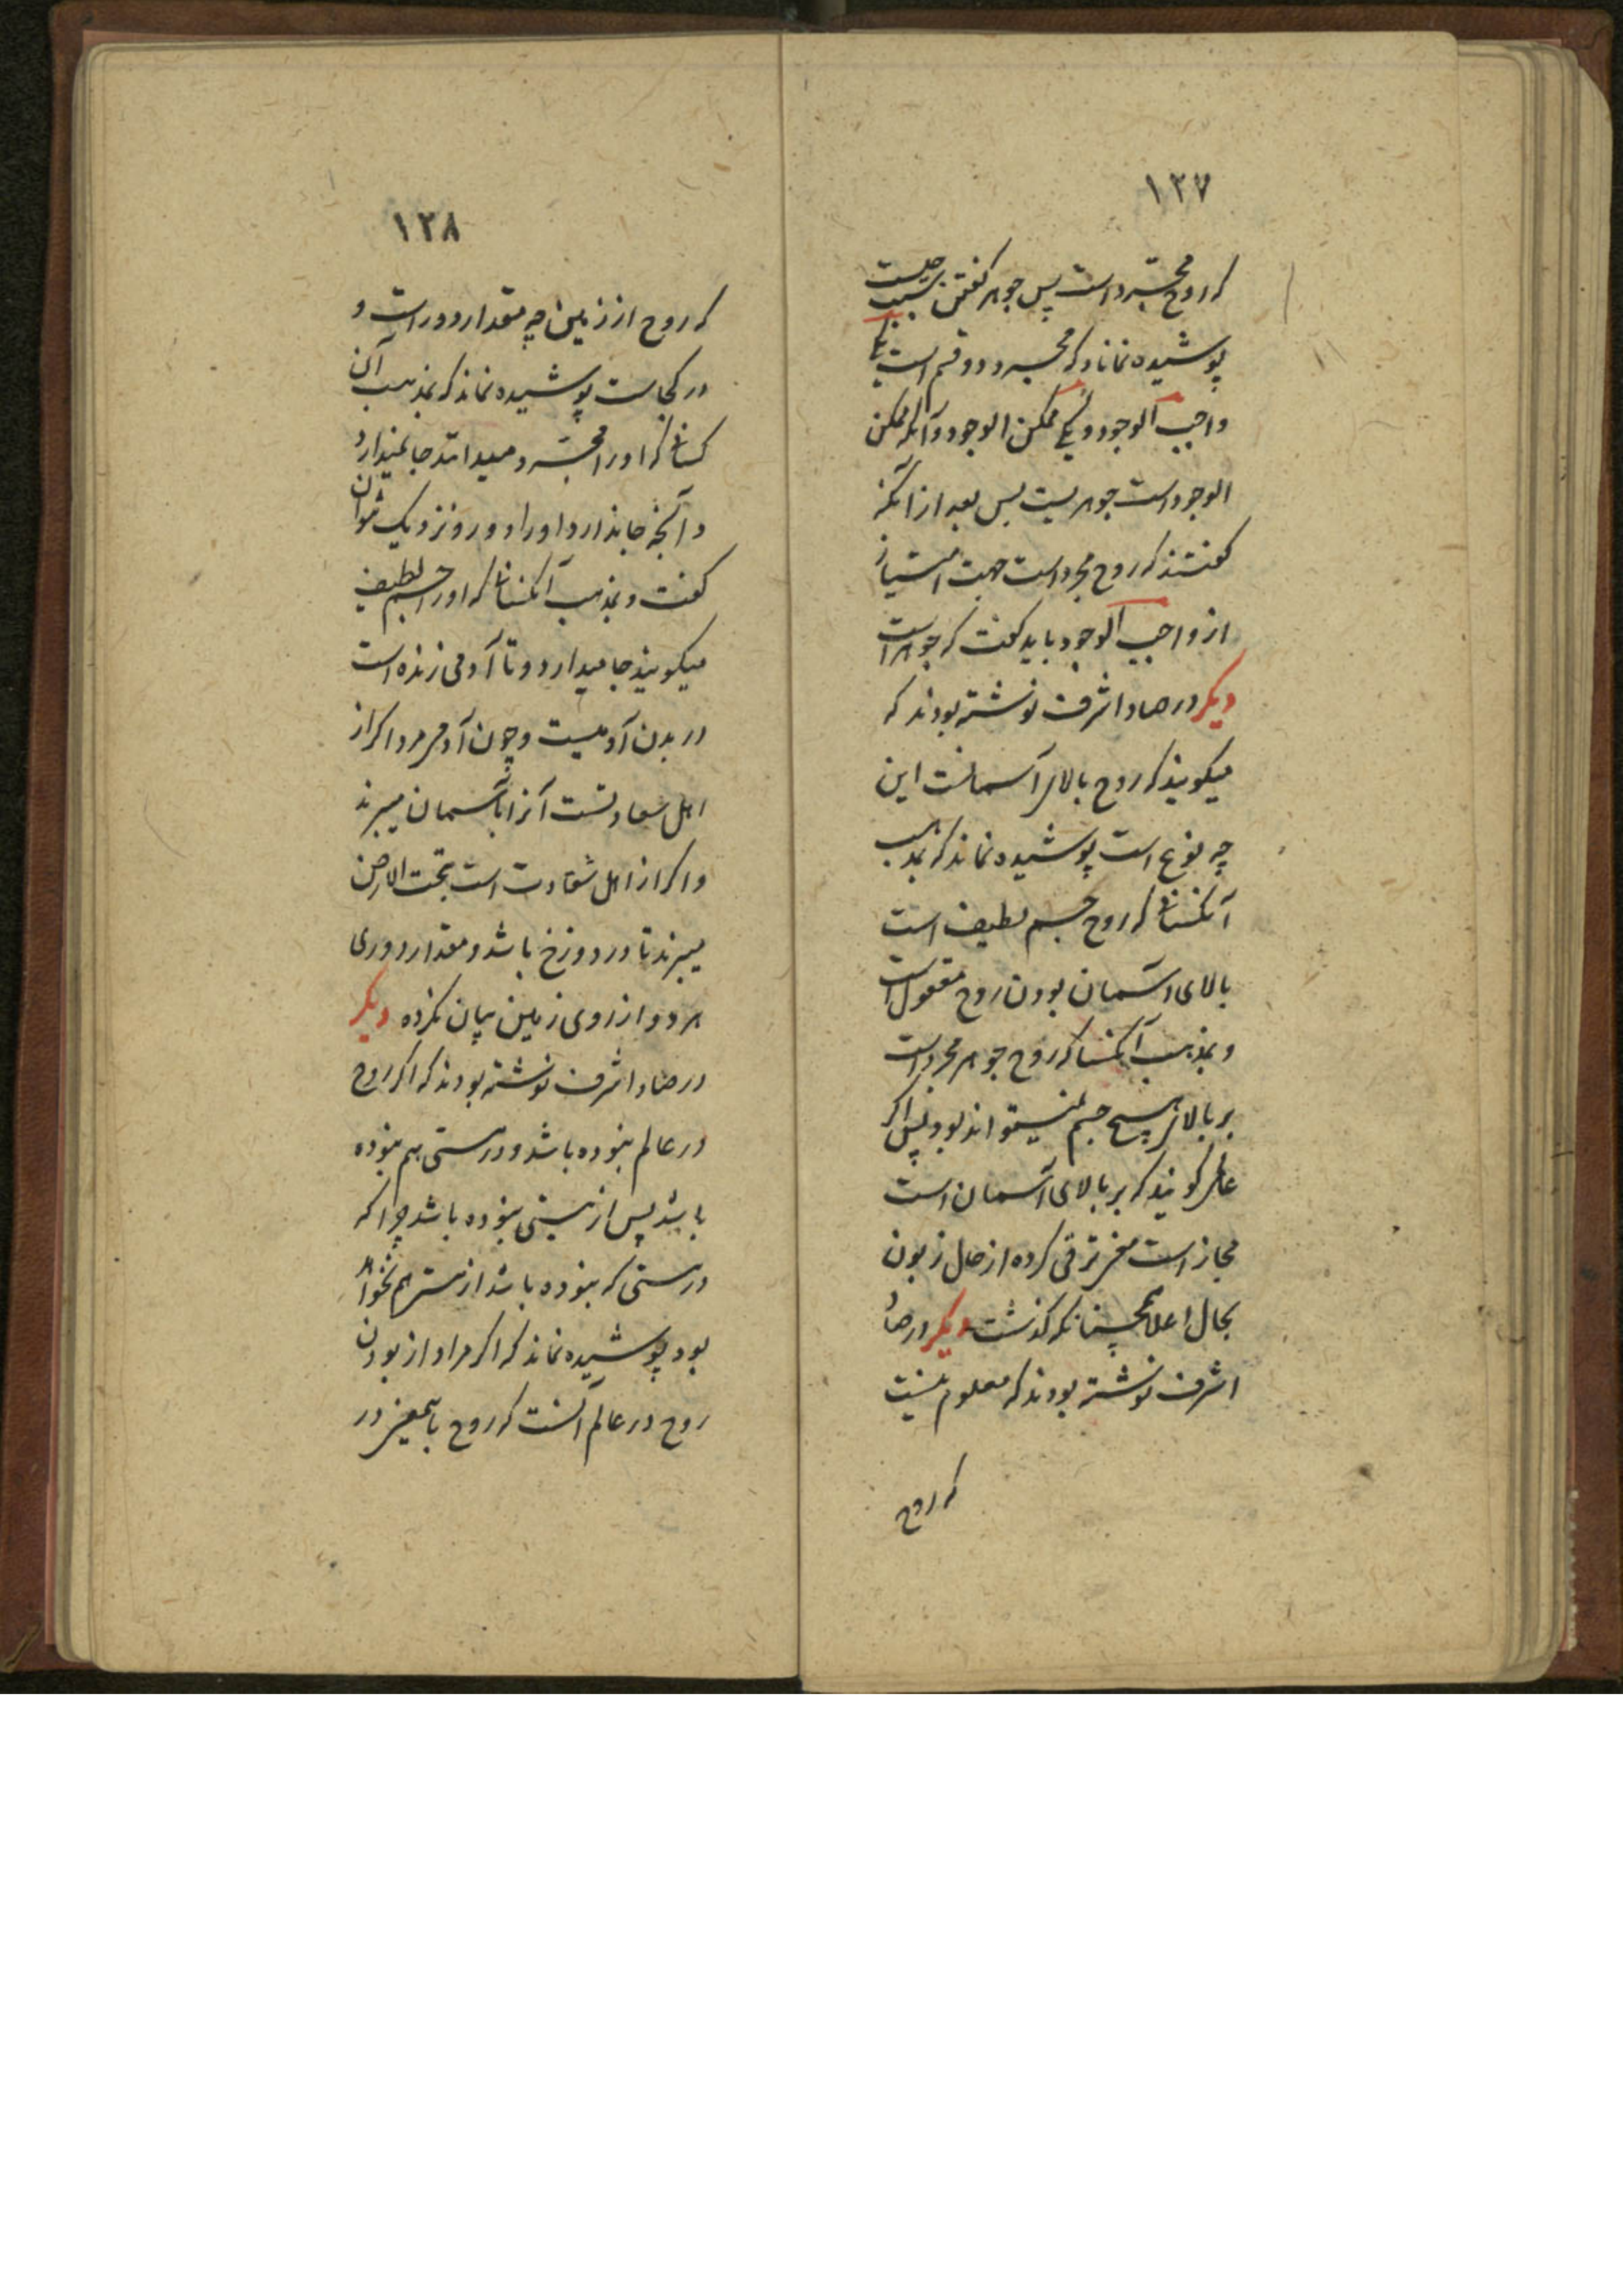 ۱۲۷
که روح مجرد است پس جوهر گفتن بسبب چیست
پوشیده نماناد که مجرد دو قسم است یکی
واجب الوجود و یکی ممکن الوجود و آنکه ممکن
الوجود است جوهریست پس بعد از آنکه
گفتند که روح مجرد است جهت امتیاز
از واجب الوجود باید گفت که جوهر است
دیگر در صاد اشرف نوشته بودند که
میگویند که روح بالای آسمانست این
چه نوع است پوشیده نماند که بمذهب
آنکسانی که روح جسم لطیف است
بالای آسمان بودن روح معقول است
و بمذهب آنکسا که روح جوهر مجرد است
بر بالای هیچ جسم نمیتواند بود پس اگر
گویند که بر بالای آسمان است
مجاز است ترقی کرده از حال زبون
بحال اعلا همچنانکه گذشت دیگر در صاد
اشرف نوشته بودند که معلوم نیست
که روح
۱۲۸
که روح از زمین چه مقدار دور است و
در کجاست پوشیده نماند که بمذهب آن
کسانی که او را مجرد میدانند جا نمیدارد
و آنچه جا ندارد او را دور و نزدیک نتوان
گفت و بمذهب آنکسانی که او را جسم لطیف
میگویند جا میدارد و تا آدمی زنده است
در بدن آدمیست و چون آدمی مرد اگر از
اهل سعادتست آنرا بآسمان میبرند
و اگر از اهل شقاوت است بتحت الارض
میبرند تا در دوزخ باشد و مقدار دوری
هر دو از روی زمین بیان نکرده دیگر
در صاد اشرف نوشته بودند که اگر روح
در عالم نبوده باشد و درستی هم نبوده
باشد پس از نیستی نبوده باشد چرا که
درستی که نبوده باشد از هم نخواهد
بود پوشیده نماند که اگر مراد از بودن
روح در عالم آنست که روح باین معنی در